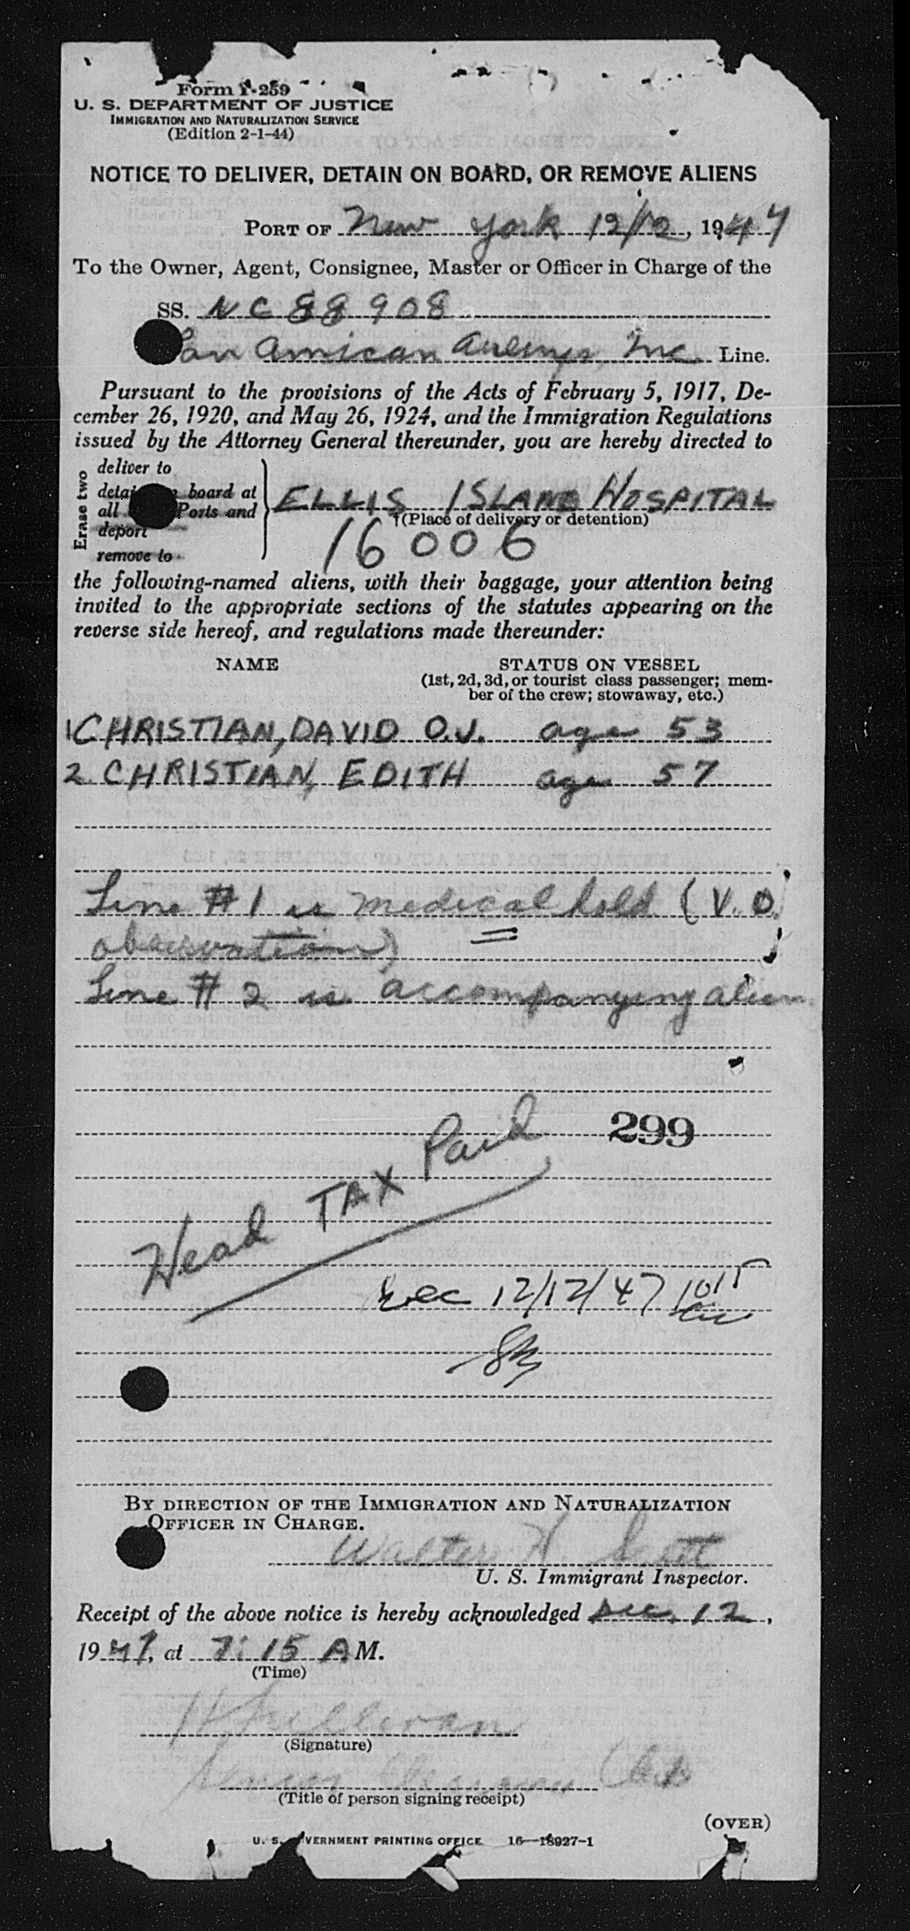 Form I-259
U. S. DEPARTMENT OF JUSTICE
IMMIGRATION AND NATURALIZATION SERVICE
(Edition 2-1-44)
NOTICE TO DELIVER, DETAIN ON BOARD, OR REMOVE ALIENS
PORT OF New York 12/12, 1947
To the Owner, Agent, Consignee, Master or Officer in Charge of the
SS. NC 88908
Pan American Airways, Inc Line.
Pursuant to the provisions of the Acts of February 5, 1917, De-
cember 26, 1920, and May 26, 1924, and the Immigration Regulations
issued by the Attorney General thereunder, you are hereby directed to
Erase two
deliver to
board at
all Ports and
deport
remove to
ELLIS ISLAND HOSPITAL
(Place of delivery or detention)
16006
the following-named aliens, with their baggage, your attention being
invited to the appropriate sections of the statutes appearing on the
reverse side hereof, and regulations made thereunder:
NAME STATUS ON VESSEL
(1st, 2d, 3d, or tourist class passenger; mem-
ber of the crew; stowaway, etc.)
1 CHRISTIAN, DAVID O.J. age 53
2 CHRISTIAN, EDITH age 57
Line #1 is medical hold (V.D.
observation)
Line #2 is accompanying alien
299
Head TAX Paid
Rec 12/12/47 1015
BY DIRECTION OF THE IMMIGRATION AND NATURALIZATION
OFFICER IN CHARGE.
Walter H. Scott
U. S. Immigrant Inspector.
Receipt of the above notice is hereby acknowledged Dec. 12,
1947, at 7:15 AM.
(Time)
H Sullivan
(Signature)
(Title of person signing receipt)
(OVER)
U. S. GOVERNMENT PRINTING OFFICE 16—18927-1